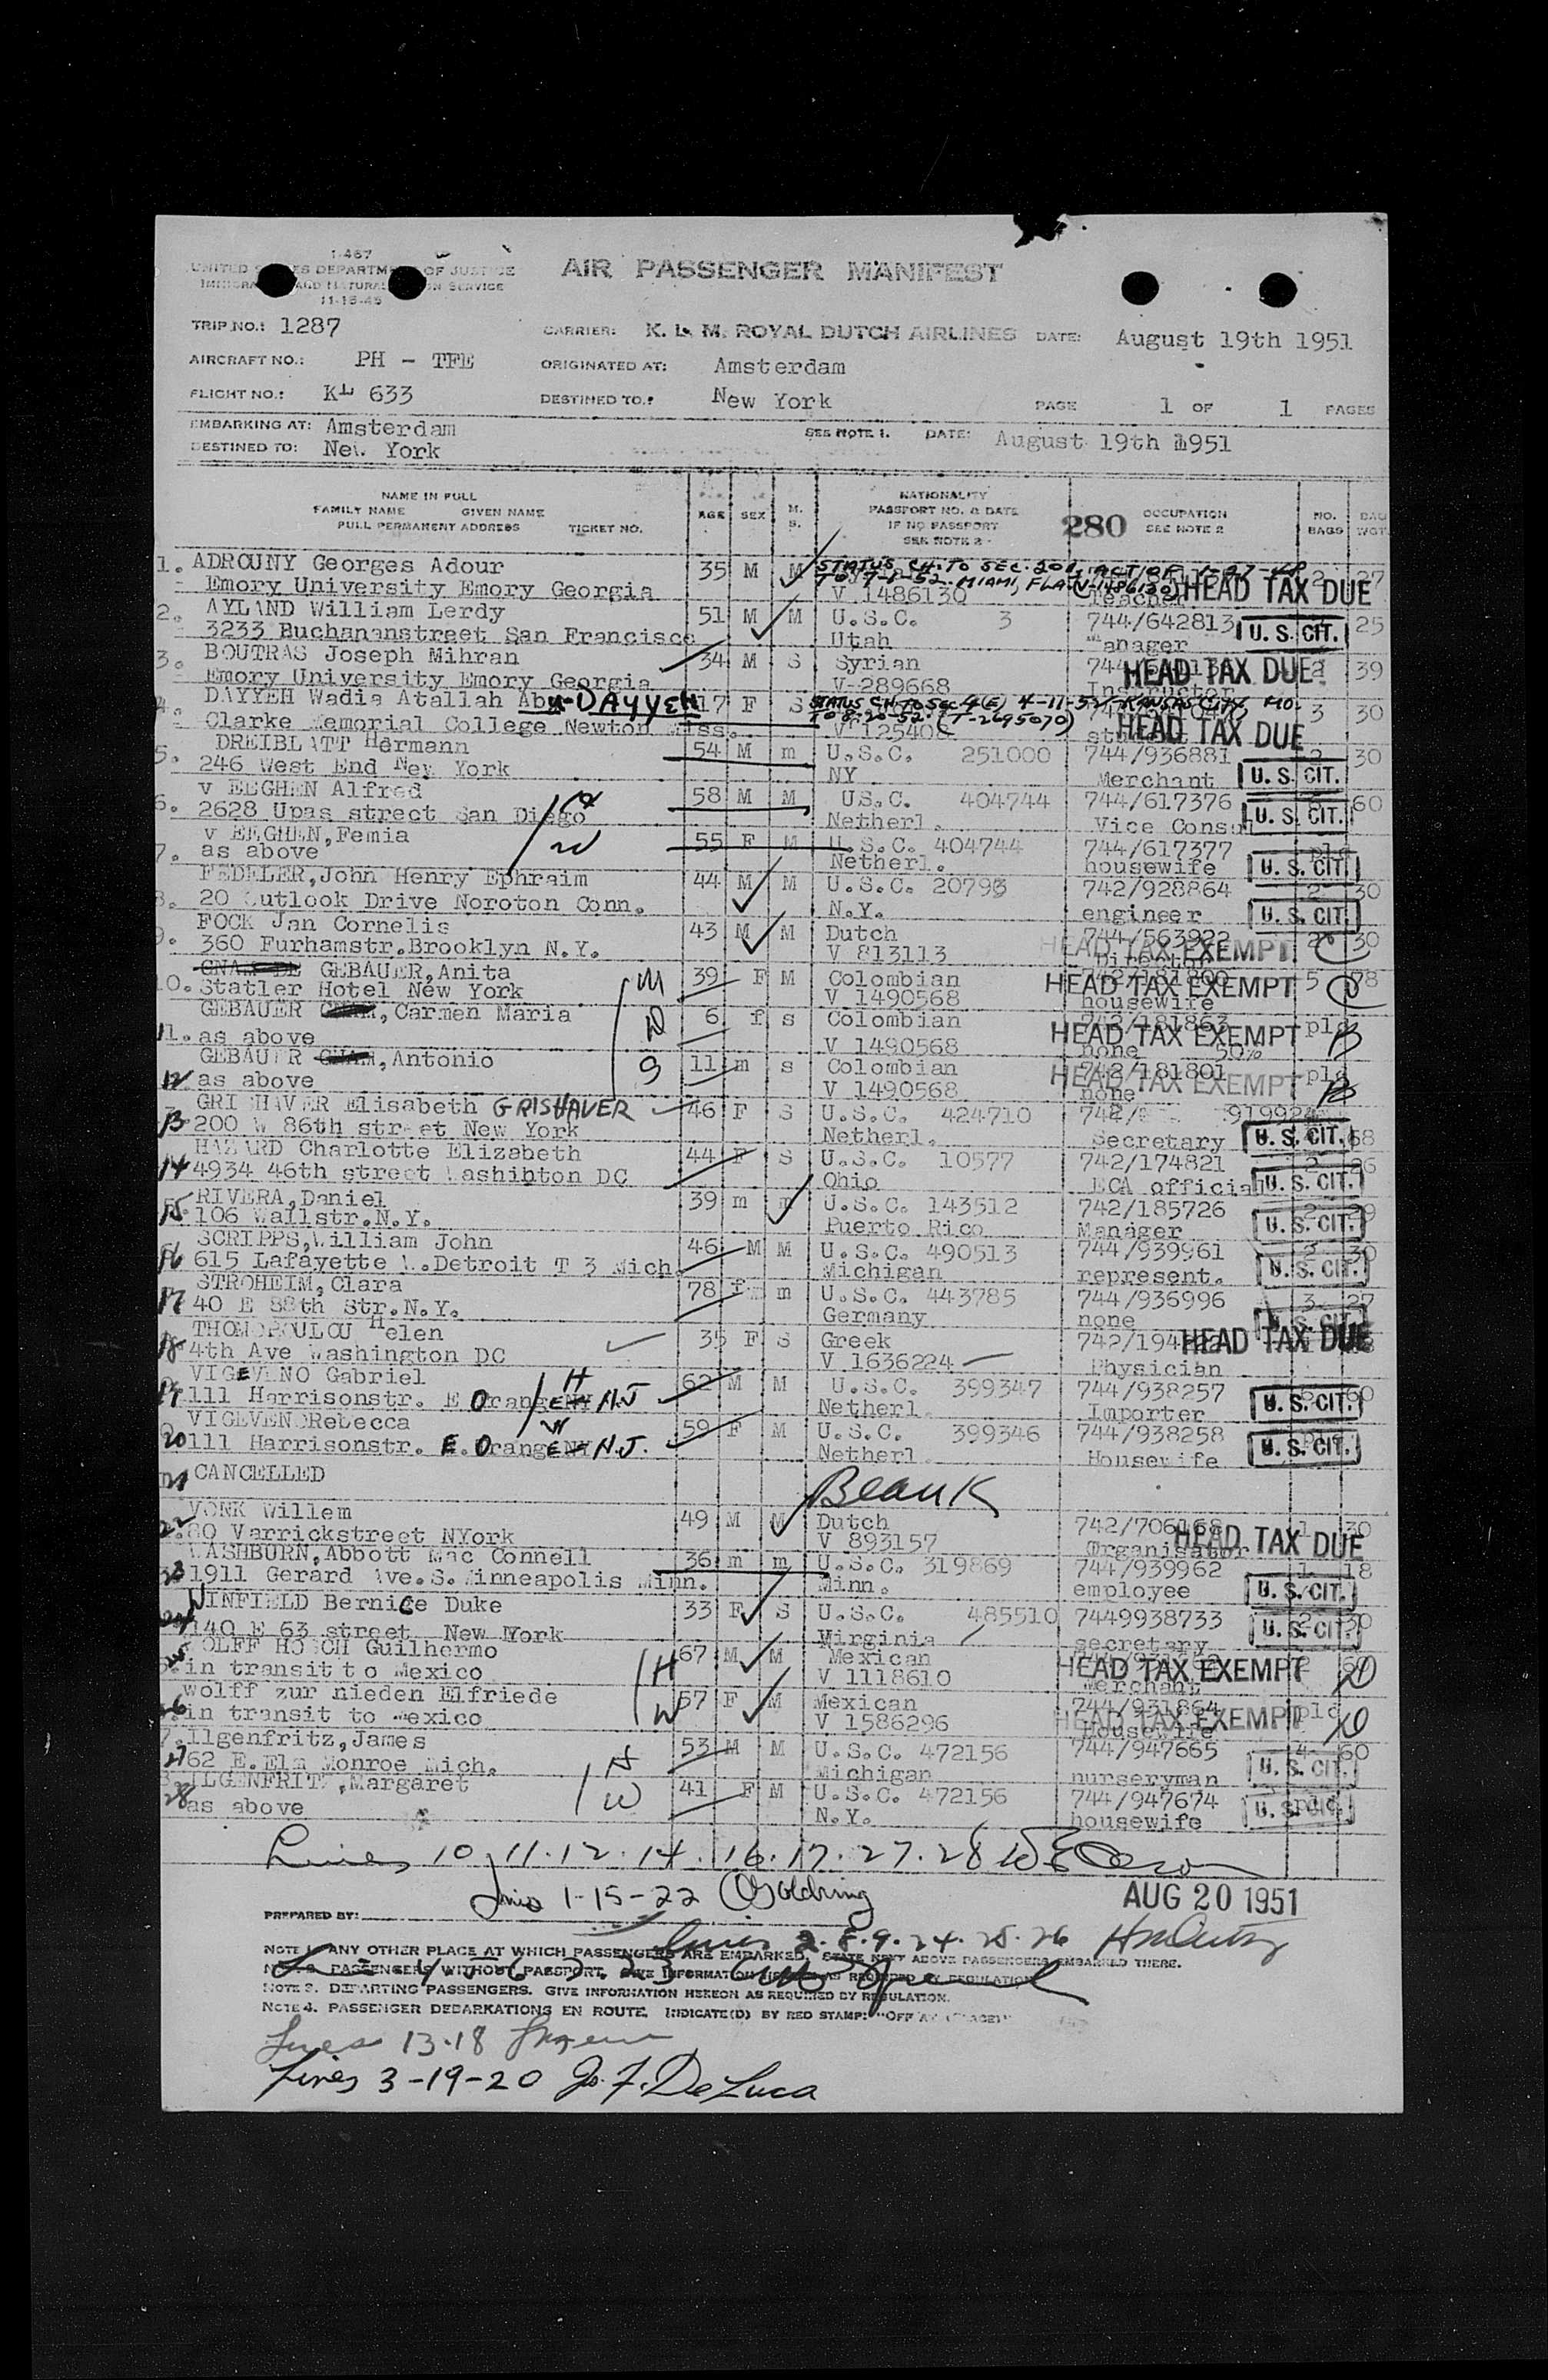 1-467
UNITED STATES DEPARTMENT OF JUSTICE
IMMIGRATION AND NATURALIZATION SERVICE
11-15-45
AIR PASSENGER MANIFEST
TRIP NO.: 1287 CARRIER: K. L. M. ROYAL DUTCH AIRLINES DATE: August 19th 1951
AIRCRAFT NO.: PH - TFE ORIGINATED AT: Amsterdam
FLIGHT NO.: KL 633 DESTINED TO: New York PAGE 1 OF 1 PAGES
EMBARKING AT: Amsterdam SEE NOTE 1. DATE: August 19th 1951
DESTINED TO: New York
NAME IN FULL
FAMILY NAME GIVEN NAME
FULL PERMANENT ADDRESS TICKET NO.
AGE SEX M. S.
NATIONALITY
PASSPORT NO. & DATE
IF NO PASSPORT
SEE NOTE 2
280 OCCUPATION
SEE NOTE 2
NO. BAGS BAG WGT.
1. ADROUNY Georges Adour 35 M M STATUS CH. TO SEC. 201, ACT OF 1-27-48 2 27
Emory University Emory Georgia V 1486130 TO 7-1-52. MIAMI, FLA. (V-1486130) Teacher HEAD TAX DUE
2. AYLAND William Lerdy 51 M M U.S.C. 3 744/642813 25
3233 Buchananstreet San Francisco Utah Manager U. S. CIT.
3. BOUTRAS Joseph Mihran 34 M S Syrian HEAD TAX DUE 2 39
Emory University Emory Georgia V-289668 Instructor
4. DAYYEH Wadia Atallah Abu-DAYYEH 17 F S STATUS CH TO SEC 4(E) 4-11-52-KANSAS CITY, MO. 3 30
Clarke Memorial College Newton Miss. TO 8-20-52. (T-2695070) V 125408 student HEAD TAX DUE
5. DREIBLATT Hermann 54 M m U.S.C. 251000 744/936881 2 30
246 West End New York NY Merchant U. S. CIT.
6. v EEGHEN Alfred H 58 M M US.C. 404744 744/617376 60
2628 Upas street San Diego Netherl. Vice Consul U. S. CIT.
7. v EEGHEN, Femia W 55 F M U.S.C. 404744 744/617377 plc
as above Netherl. housewife U. S. CIT.
8. FEDELER, John Henry Ephraim 44 M M U.S.C. 20793 742/928864 2 30
20 Outlook Drive Noroton Conn. N.Y. engineer U. S. CIT.
9. FOCK Jan Cornelis 43 M M Dutch 744/563922 30
360 Furhamstr. Brooklyn N.Y. V 813113 Director HEAD TAX EXEMPT
10. GEBAUER, Anita M 39 F M Colombian 742/181800 5 78
Statler Hotel New York V 1490568 housewife HEAD TAX EXEMPT
11. GEBAUER, Carmen Maria D 6 f s Colombian 742/181863 plc
as above V 1490568 none 50% HEAD TAX EXEMPT
12 GEBAUER, Antonio S 11 m s Colombian 742/181801 plc
as above V 1490568 none HEAD TAX EXEMPT
13 GRISHAVER Elisabeth GRISHAVER 46 F S U.S.C. 424710 742/ 919924
200 W 86th street New York Netherl. Secretary U. S. CIT. 68
14 HAZARD Charlotte Elizabeth 44 F S U.S.C. 10577 742/174821 2 26
4934 46th street Washihton DC Ohio ECA official U. S. CIT.
15 RIVERA, Daniel 39 m m U.S.C. 143512 742/185726 2 29
106 Wallstr. N.Y. Puerto Rico Manager U. S. CIT.
16 SCRIPPS, William John 46 M M U.S.C. 490513 744/939961 3 30
615 Lafayette W. Detroit T 3 Mich. Michigan represent. U. S. CIT.
17 STROHEIM, Clara 78 f m U.S.C. 443785 744/936996 3 27
40 E 88th Str. N.Y. Germany none U. S. CIT.
18 THOMOPOULOU Helen 35 F S Greek HEAD TAX DUE
4th Ave Washington DC V 1636224 Physician
19 VIGEVENO Gabriel H 62 M M U.S.C. 399347 744/938257 60
111 Harrisonstr. E Orange N.J Netherl. Importer U. S. CIT.
20 VIGEVENO Rebecca W 59 F M U.S.C. 399346 744/938258 plc
111 Harrisonstr. E. Orange N.J. Netherl. Housewife U. S. CIT.
21 CANCELLED Blank
22 VONK Willem 49 M M Dutch 742/706168 1 30
80 Varrickstreet NYork V 893157 Organisator HEAD TAX DUE
23 WASHBURN, Abbott Mac Connell 36 m m U.S.C. 319869 744/939962 1 18
1911 Gerard Ave. S. Minneapolis Minn. Minn. employee U. S. CIT.
24 WINFIELD Bernice Duke 33 F S U.S.C. 485510 7449938733 2 30
140 E 63 street New York Virginia secretary U. S. CIT.
25 WOLFF HOSCH Guilhermo H 67 M M Mexican
in transit to Mexico V 1118610 Merchant HEAD TAX EXEMPT
26 wolff zur nieden Elfriede W 57 F M Mexican 744/931864 plc
in transit to Mexico V 1586296 Housewife HEAD TAX EXEMPT
27 Ilgenfritz, James H 53 M M U.S.C. 472156 744/947665 4 60
62 E. Elm Monroe Mich. Michigan nurseryman U. S. CIT.
28 ILGENFRITZ, Margaret W 41 F M U.S.C. 472156 744/947674
as above N.Y. housewife U. S. CIT.
Lines 10, 11. 12. 14. 16. 17. 27. 28
Lines 1-15-22 Goldring AUG 20 1951
PREPARED BY:
Lines 2. 8. 9. 24. 25. 26
NOTE 1. ANY OTHER PLACE AT WHICH PASSENGERS ARE EMBARKED, STATE NEXT ABOVE PASSENGERS EMBARKED THERE.
NOTE 2. PASSENGERS WITHOUT PASSPORT. GIVE INFORMATION HEREON AS REQUIRED BY REGULATION.
NOTE 3. DEPARTING PASSENGERS. GIVE INFORMATION HEREON AS REQUIRED BY REGULATION.
NOTE 4. PASSENGER DEBARKATIONS EN ROUTE. INDICATE(D) BY RED STAMP: "OFF AT (PLACE)"
Lines 13-18
Lines 3-19-20 Jo. F. DeLuca